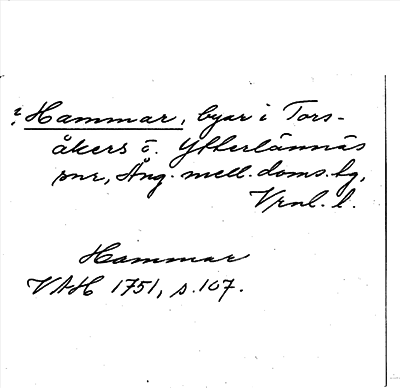 ? Hammar, byar i Tors-
åkers o. Ytterlännäs
snr, Ång. mell. doms. tg,
Vrnl. l.
Hammar
VAH 1751, s. 107.